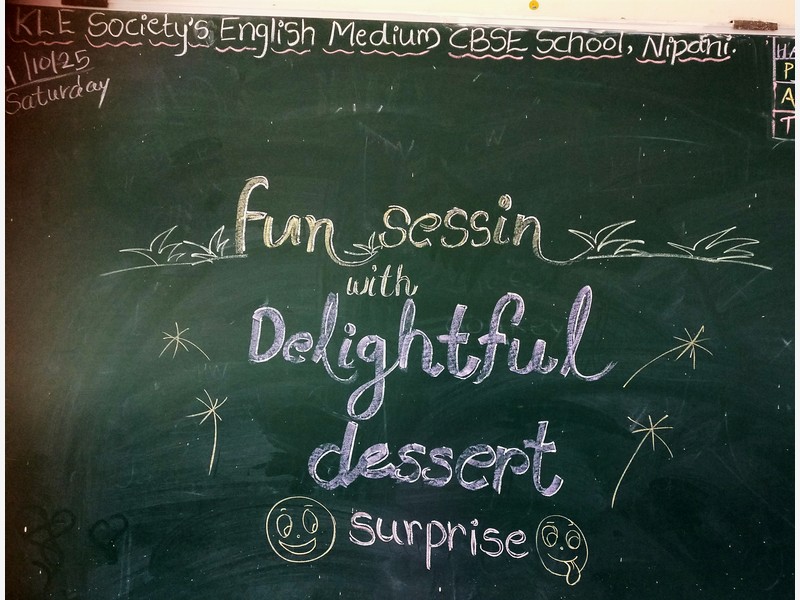 KLE Society's English Medium CBSE School, Nipani.
1/10/25
Saturday
HA
P
A
T
fun sessin
with
Delightful
dessert
surprise